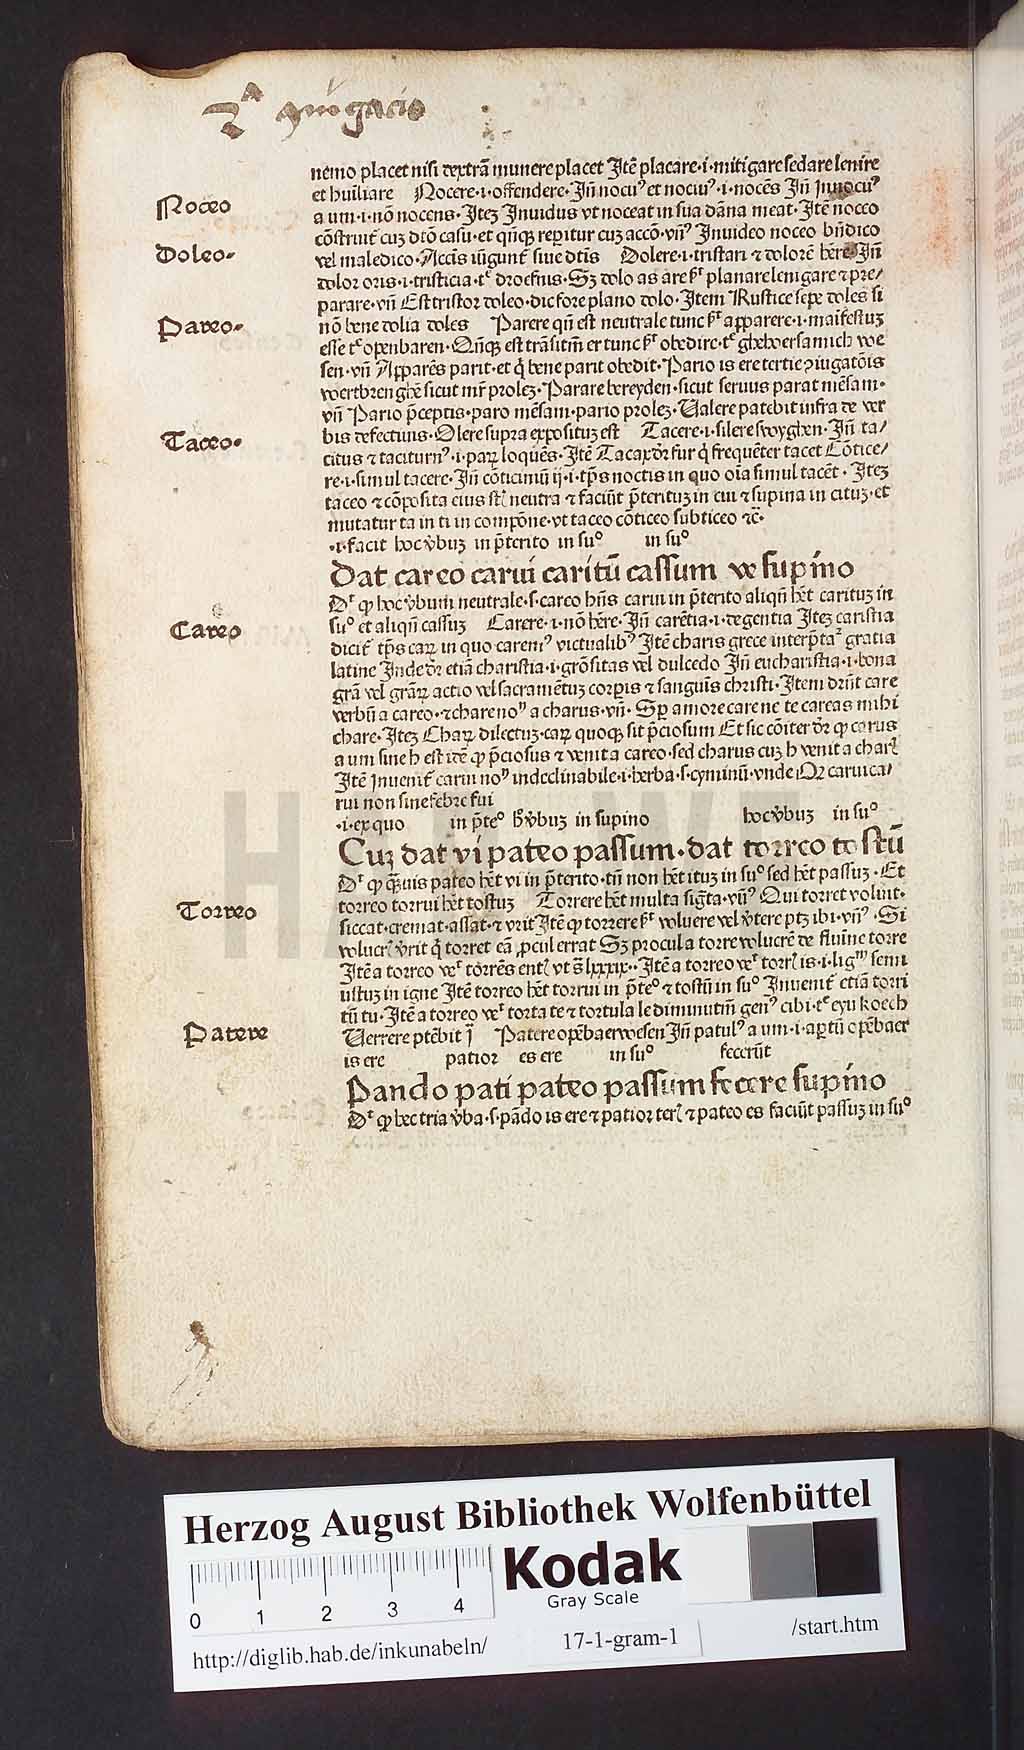 2ᴬ ꝯiugacio
nemo placet nisi dextrā munere placet Itē placare·i·mitigare sedare lenire
et hūiliare Nocere·i·offendere·Iñ nocuꝰ et nociuꝰ·i·nocēs Iñ Innocuꝰ
Noceo
a um·i·nō nocens·Itez Inuidus vt noceat in sua dāna meat·Itē noceo
cōstruit̄ cuz dtō casu·et qñqꝫ repitur cuz accō·vñꝰ Inuideo noceo bñdico
Doleo·
vel maledico·Accīs iūgunt̄ siue dtis Dolere·i·tristari ⁊ dolorē hēre Iñ
dolor oris·i·tristicia·tᵉ droefnis·Sꝫ dolo as are ẜʳ planare lenigare ⁊ pre/
parare·vñ Est tristor doleo·dic fore plano dolo·Item Rustice sepe doles si
Pareo·
nō bene dolia doles Parere qñ est neutrale tunc ẜʳ apparere·i·maifestuz
esse tᵉ openbaren·Qñqꝫ est trāsitiū er tunc ẜʳ obedire·tᵉ ghehoersamich we
sen·vñ Apparēs parit·et q̇ bene parit obedit·Pario is ere tertie ꝯiugatōis
voertbrenghē sicut mr̄ prolez·Parare bereyden·sicut seruus parat mēsam·
vñ Pario p̄ceptis·paro mēsam·pario prolez·Ualere patebit infra de ver
Taceo·
bis defectiuis·Olere supra expositus est Tacere·i·silere swyghen·Iñ ta/
citus ⁊ taciturnꝰ·i·paꝝ loquēs·Itē Tacax dr̄ fur q̇ frequēter tacet Cōtice/
re·i·simul tacere·Iñ cōticiniū ij·i·tp̄s noctis in quo oīa simul tacēt·Itez
taceo ⁊ cōposita eius st̄ neutra ⁊ faciūt p̄terituz in cui ⁊ supina in cituz·et
mutatur ta in ti in compōne·vt taceo cōticeo subticeo ⁊c̄·
·i·facit hoc v̇buz in p̄terito in suᵒ in suᵒ
Dat careo carui caritū cassum ve supino
Dʳ ꝙ hoc v̇bum neutrale·s·careo hñs carui in p̄terito aliqñ hēt carituz in
Careo
suᵒ et aliqñ cassuz Carere·i·nō hēre·Iñ carētia·i·degentia Itez caristia
dicit̄ tp̄s caꝝ in quo caremꝰ victualibꝰ Itē charis grece interp̄taʳ gratia
latine Inde dr̄ etiā charistia·i·grōsitas vel dulcedo Iñ eucharistia·i·bona
grā vel grāꝝ actio vel sacramētuz corpis ⁊ sanguīs christi·Item drūt care
verbū a careo·⁊ chare noᵐ a charus·vñ· Sp amore care ne te careas mihi
chare·Itez Chaꝝ dilectuz·caꝝ quoqꝫ sit p̄ciosum Et sic cōiter dr̄ ꝙ carus
a um sine h est idē ꝙ p̄ciosus ⁊ venit a careo·sed charus cuz h venit a chari
Itē Inuenit̄ carui noᵐ indeclinabile·i·herba·s·cyminū·vnde Oꝫ carui ca/
rui non sine febre fui
·i·ex quo in p̄teᵒ h̄ v̇buz in supino hoc v̇buz in suᵒ
Cuꝫ dat vi pateo passum·dat torreo tostū
Dʳ ꝙ q̄uis pateo hēt vi in p̄terito·tñ non hēt ituz in suᵒ sed hēt passuz·Et
Torreo
torreo torrui hēt tostuz Torrere hēt multa sigta·vñꝰ Qui torret voluit·
siccat·cremat·assat·⁊ vrit Itē ꝙ torrere ẜʳ voluere vel v̇tere ptꝫ ibi·vñꝰ·Si
volucrē v̇rit q̇ torret eā ꝓcul errat Sꝫ procul a torre volucrē de fluīne torre
Itē a torreo veʳ torrēs entꝭ vt s̄ lxxxix··Itē a torreo veʳ torrꝭ is·i·ligᵐ semi
ustuz in igne Itē torreo hēt torrui in p̄teᵒ ⁊ tostū in suᵒ Inuenit̄ etiā torri
tū tu·Itē a torreo veʳ torta te ⁊ tortula le diminutiū genꝰ cibi·tᵉ eyu koech
Patere
Uerrere ptēbit ī Patere opēbaer woesen Iñ patulꝰ a um·i·aptū opēbaer
is ere patior es ere in suᵒ fecerūt
Pando pati pateo passum fecere supino
Dʳ ꝙ hec tria v̇ba·s·pādo is ere ⁊ patior terꝭ ⁊ pateo es faciūt passuz in suᵒ
HAB WF
Herzog August Bibliothek Wolfenbüttel
0 1 2 3 4
Kodak
Gray Scale
http://diglib.hab.de/inkunabeln/
17-1-gram-1
/start.htm